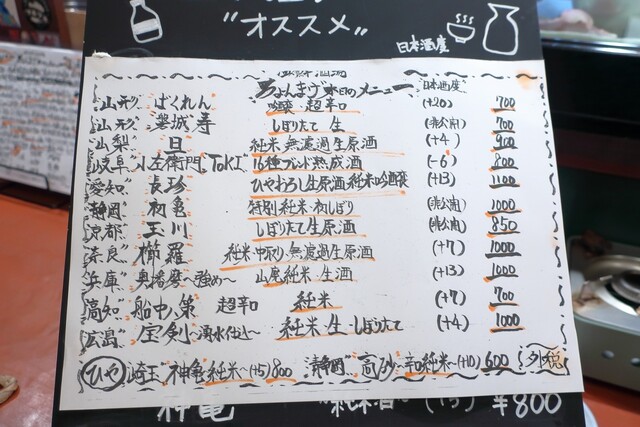 "オススメ"
日本酒度
ちょんまげ 本日のメニュー 日本酒度
山形 ばくれん 吟醸 超辛口 (+20) 700
山形 磐城壽 しぼりたて 生 (非公開) 700
山梨 旦 純米 無濾過生原酒 (+4) 900
岐阜 小左衛門"TOKI" 16種ブレンド熟成酒 (-6) 800
愛知 長珍 ひやおろし生原酒 純米吟醸 (+13) 1100
静岡 初亀 特別純米・初しぼり (非公開) 1000
京都 玉川 しぼりたて生原酒 (非公開) 850
奈良 櫛羅 純米・中取り無濾過生原酒 (+7) 1000
兵庫 奥播磨〜強め〜 山廃純米 生酒 (+13) 1000
高知 船中八策 超辛口 純米 (+7) 700
広島 宝剣〜湧水仕込〜 純米・生・しぼりたて (+4) 1000
ひや 埼玉"神亀純米〜(+5)800 静岡"高砂〜辛口純米〜(+10)600 外税
神亀 "純米酒" (+5) ¥800